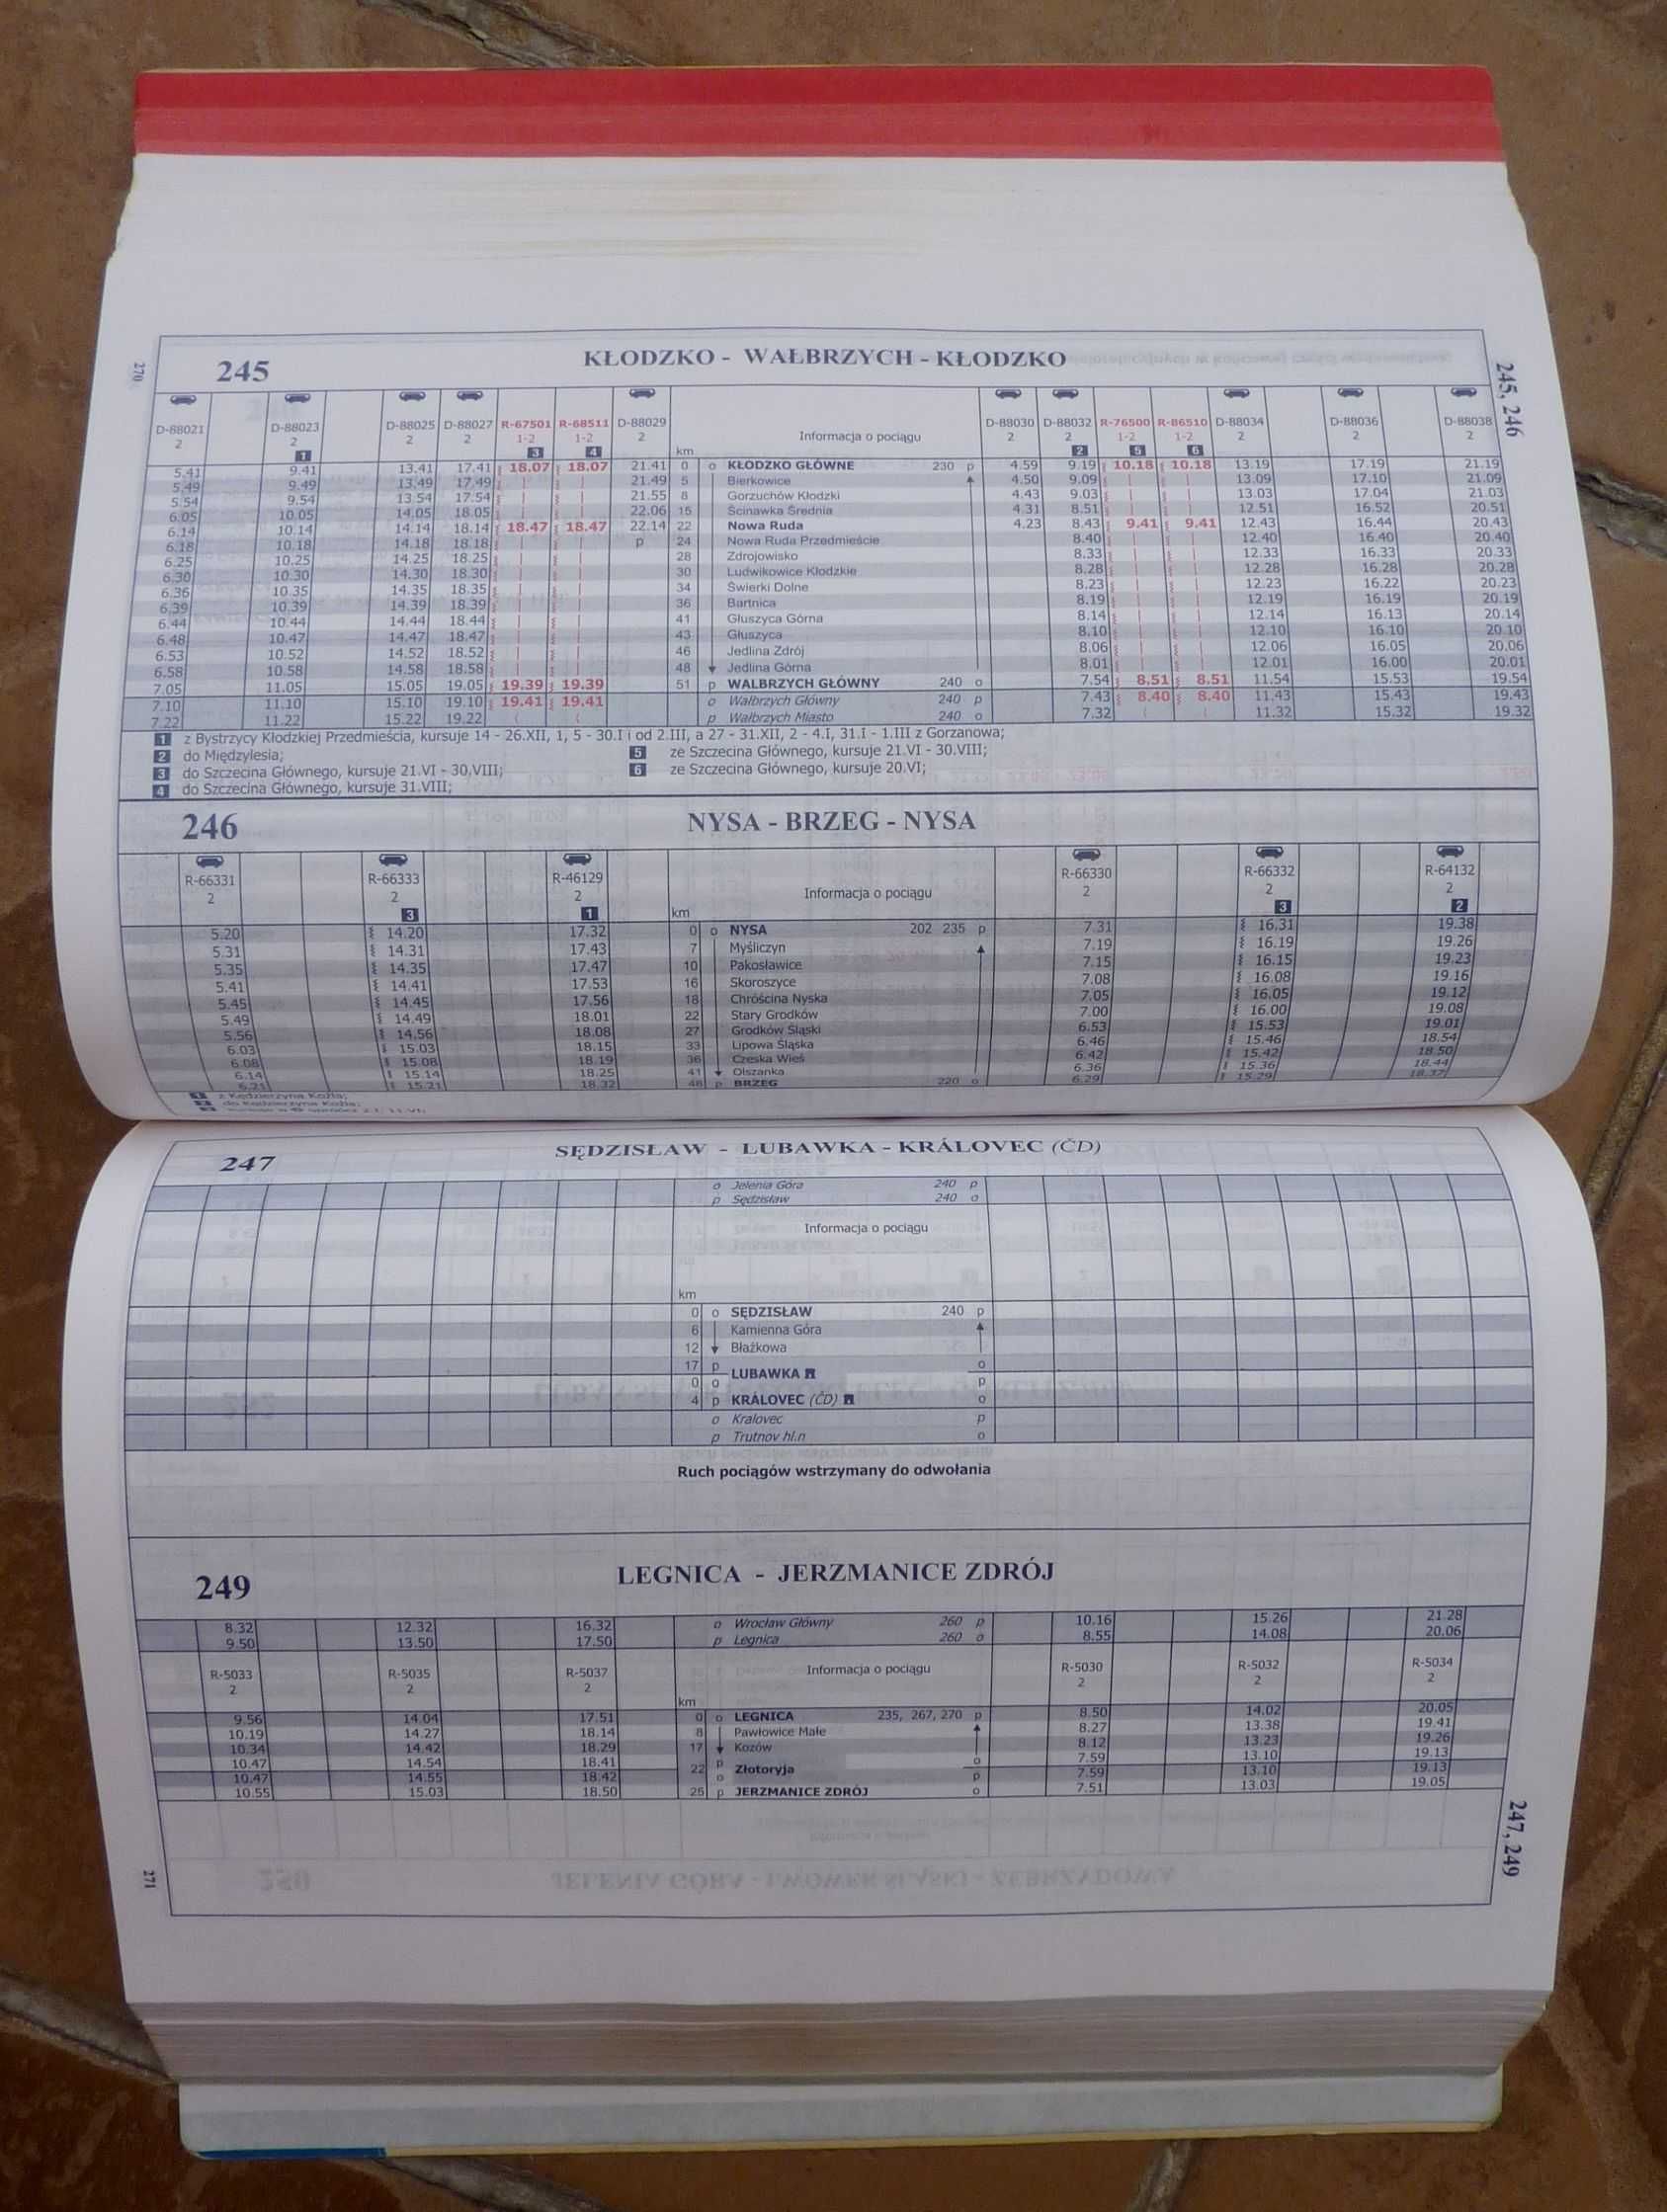 270
245
KŁODZKO - WAŁBRZYCH - KŁODZKO
245, 246
D-88021 D-88023 D-88025 D-88027 R-67501 R-68511 D-88029 Informacja o pociągu D-88030 D-88032 R-76500 R-86510 D-88034 D-88036 D-88038
2 2 2 2 1-2 1-2 2 2 2 1-2 1-2 2 2 2
1 3 4 km 2 5 6
5.41 9.41 13.41 17.41 18.07 18.07 21.41 0 o KŁODZKO GŁÓWNE 230 p 4.59 9.19 10.18 10.18 13.19 17.19 21.19
5.49 9.49 13.49 17.49 21.49 5 Bierkowice 4.50 9.09 13.09 17.10 21.09
5.54 9.54 13.54 17.54 21.55 8 Gorzuchów Kłodzki 4.43 9.03 13.03 17.04 21.03
6.05 10.05 14.05 18.05 22.06 15 Ścinawka Średnia 4.31 8.51 12.51 16.52 20.51
6.14 10.14 14.14 18.14 18.47 18.47 22.14 22 Nowa Ruda 4.23 8.43 9.41 9.41 12.43 16.44 20.43
6.18 10.18 14.18 18.18 p 24 Nowa Ruda Przedmieście 8.40 12.40 16.40 20.40
6.25 10.25 14.25 18.25 28 Zdrojowisko 8.33 12.33 16.33 20.33
6.30 10.30 14.30 18.30 30 Ludwikowice Kłodzkie 8.28 12.28 16.28 20.28
6.36 10.35 14.35 18.35 34 Świerki Dolne 8.23 12.23 16.22 20.23
6.39 10.39 14.39 18.39 36 Bartnica 8.19 12.19 16.19 20.19
6.44 10.44 14.44 18.44 41 Głuszyca Górna 8.14 12.14 16.13 20.14
6.48 10.47 14.47 18.47 43 Głuszyca 8.10 12.10 16.10 20.10
6.53 10.52 14.52 18.52 46 Jedlina Zdrój 8.06 12.06 16.05 20.06
6.58 10.58 14.58 18.58 48 Jedlina Górna 8.01 12.01 16.00 20.01
7.05 11.05 15.05 19.05 19.39 19.39 51 p WAŁBRZYCH GŁÓWNY 240 o 7.54 8.51 8.51 11.54 15.53 19.54
7.10 11.10 15.10 19.10 19.41 19.41 o Wałbrzych Główny 240 p 7.43 8.40 8.40 11.43 15.43 19.43
7.22 11.22 15.22 19.22 p Wałbrzych Miasto 240 o 7.32 11.32 15.32 19.32
1 z Bystrzycy Kłodzkiej Przedmieścia, kursuje 14 - 26.XII, 1, 5 - 30.I i od 2.III, a 27 - 31.XII, 2 - 4.I, 31.I - 1.III z Gorzanowa;
2 do Międzylesia;
3 do Szczecina Głównego, kursuje 21.VI - 30.VIII;
4 do Szczecina Głównego, kursuje 31.VIII;
5 ze Szczecina Głównego, kursuje 21.VI - 30.VIII;
6 ze Szczecina Głównego, kursuje 20.VI;
246
NYSA - BRZEG - NYSA
R-66331 R-66333 R-46129 Informacja o pociągu R-66330 R-66332 R-64132
2 2 2 2 2 2
3 1 km 3 2
5.20 14.20 17.32 0 o NYSA 202 235 p 7.31 16.31 19.38
5.31 14.31 17.43 7 Myśliczyn 7.19 16.19 19.26
5.35 14.35 17.47 10 Pakosławice 7.15 16.15 19.23
5.41 14.41 17.53 16 Skoroszyce 7.08 16.08 19.16
5.45 14.45 17.56 18 Chróścina Nyska 7.05 16.05 19.12
5.49 14.49 18.01 22 Stary Grodków 7.00 16.00 19.08
5.56 14.56 18.08 27 Grodków Śląski 6.53 15.53 19.01
6.03 15.03 18.15 33 Lipowa Śląska 6.46 15.46 18.54
6.08 15.08 18.19 36 Czeska Wieś 6.42 15.42 18.50
6.14 15.14 18.25 41 Olszanka 6.36 15.36 18.44
6.21 15.21 18.32 48 p BRZEG 220 o 6.29 15.29 18.37
1 z Kędzierzyna Koźla;
2 do Kędzierzyna Koźla;
247
SĘDZISŁAW - LUBAWKA - KRÁLOVEC (ČD)
o Jelenia Góra 240 p
p Sędzisław 240 o
Informacja o pociągu
km
0 o SĘDZISŁAW 240 p
6 Kamienna Góra
12 Błażkowa
17 p LUBAWKA o
0 o p
4 p KRÁLOVEC (ČD) o
o Kralovec p
p Trutnov hl.n o
Ruch pociągów wstrzymany do odwołania
249
LEGNICA - JERZMANICE ZDRÓJ
8.32 12.32 16.32 o Wrocław Główny 260 p 10.16 15.26 21.28
9.50 13.50 17.50 p Legnica 260 o 8.55 14.08 20.06
R-5033 R-5035 R-5037 Informacja o pociągu R-5030 R-5032 R-5034
2 2 2 2 2 2
km
9.56 14.04 17.51 0 o LEGNICA 235, 267, 270 p 8.50 14.02 20.05
10.19 14.27 18.14 8 Pawłowice Małe 8.27 13.38 19.41
10.34 14.42 18.29 17 Kozów 8.12 13.23 19.26
10.47 14.54 18.41 22 p Złotoryja o 7.59 13.10 19.13
10.47 14.55 18.42 o p 7.59 13.10 19.13
10.55 15.03 18.50 25 p JERZMANICE ZDRÓJ o 7.51 13.03 19.05
247, 249
271